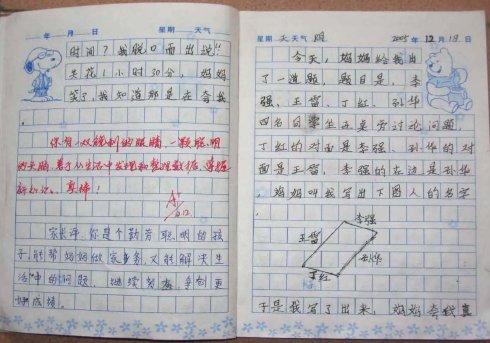 年 月 日 星期 天气
时间？我脱口而出说："
共花1小时30分，妈妈
笑了，我知道那是在夸我
你有一双锐利的眼睛，一颗聪明
的头脑，善于从生活中发现和整理数据，掌握
新知识。真棒！
家长评：你是个勤劳聪明的孩
子，能帮妈妈做家事务，又能解决生
活中的问题。继续努力，争创更
好成绩。
星期天 天气 晴 2005年12月18日
今天，妈妈给我出
了一道题，题目是，李
强、王雷、丁红、孙华
四名同学坐在桌旁讨论问题，
丁红的对面是李强、孙华的对
面是王雷，李强的左边是孙华
，妈妈叫我写出下图人的名字
李强
王雷
孙华
丁红
于是我写了出来，妈妈夸我真